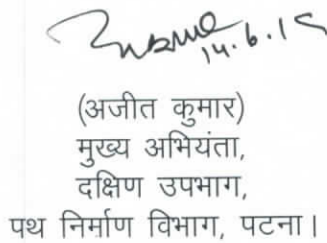 14.6.19
(अजीत कुमार)
मुख्य अभियंता,
दक्षिण उपभाग,
पथ निर्माण विभाग, पटना।